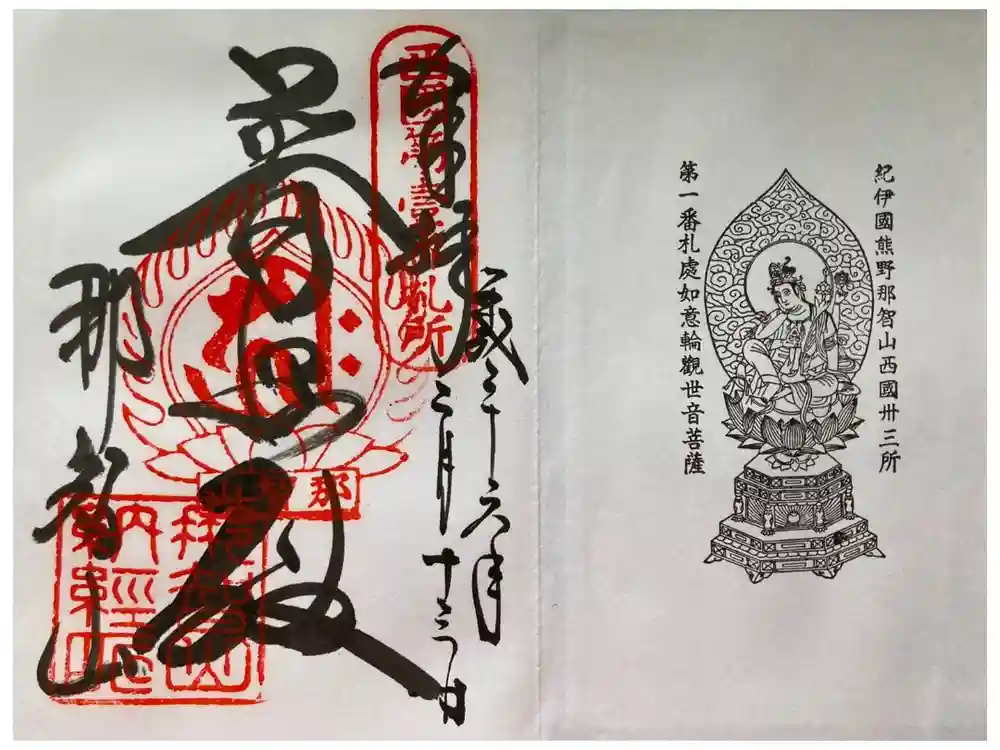 紀伊國熊野那智山西國卅三所
第一番札處如意輪觀世音菩薩
奉拝
西國第壹番札所
平成二十六年
三月十三日
普照殿
那智山
那智山